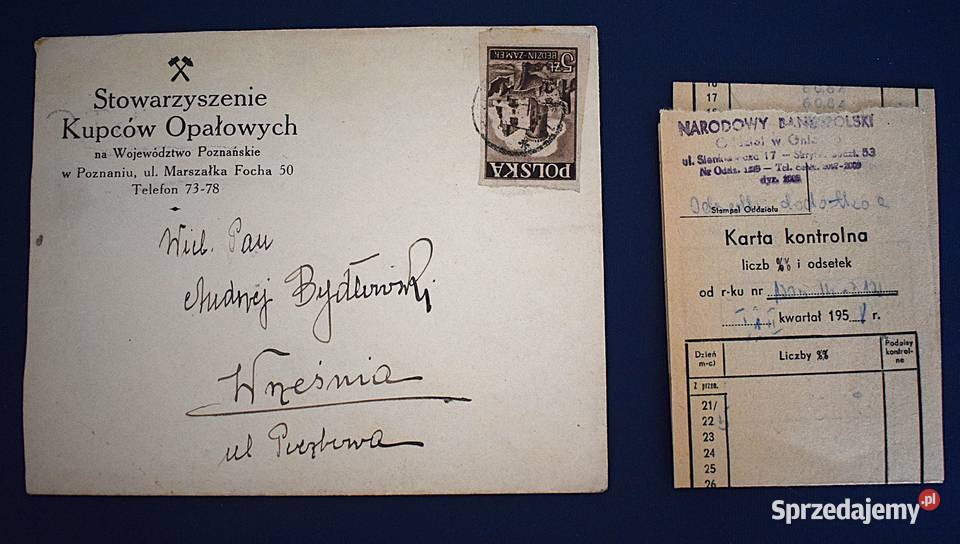 Stowarzyszenie
Kupców Opałowych
na Województwo Poznańskie
w Poznaniu, ul. Marszałka Focha 50
Telefon 73-78
5 ZŁ
BĘDZIN-ZAMEK
POLSKA
Wielb. Pan
Andrzej Bydłowski
Września
ul
16
17
18
NARODOWY BANK POLSKI
Oddział w
ul. Sienkiewicza 17 - Skryt. poczt. 53
Nr Oddz. - Tel.
Stempel Oddziału
Karta kontrolna
liczb %% i odsetek
od r-ku nr
III kwartał 195 r.
Dzień m-c)
Liczby %%
Podpisy kontrol-ne
Z przen.
21/
22
23
24
25
26
Sprzedajemy.pl